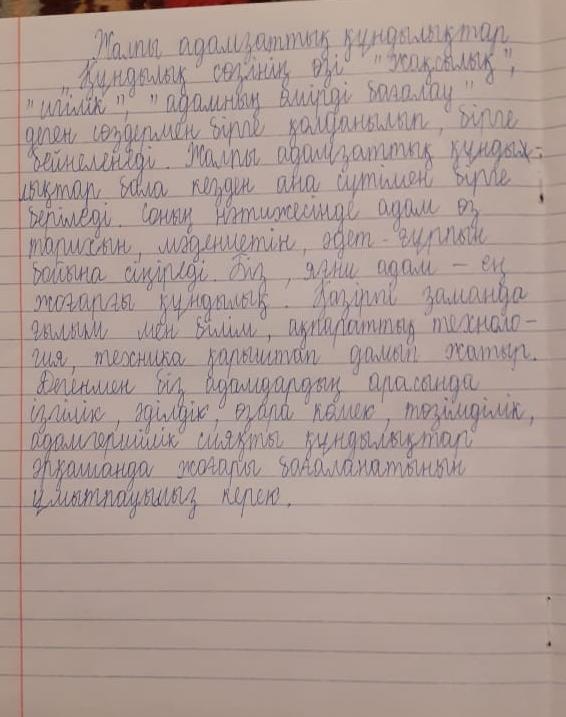 Жалпы адамзаттық құндылықтар
Құндылық сөзінің өзі "жақсылық",
"игілік", "адамның өмірді бағалау"
деген сөздермен бірге қолданылып, бірге
бейнеленеді. Жалпы адамзаттық құнды-
лықтар бала кезден ана сүтімен бірге
беріледі. Соның нәтижесінде адам өз
тарихын, мәдениетін, әдет-ғұрпын
бойына сіңіреді. Біз, яғни адам – ең
жоғарғы құндылық. Қазіргі заманда
ғылым мен білім, ақпараттық техноло-
гия, техника қарыштап дамып жатыр.
Дегенмен біз адамдардың арасында
ізгілік, әділдік, өзара көмек, төзімділік,
адамгершілік сияқты құндылықтар
әрқашанда жоғары бағаланатынын
ұмытпауымыз керек.